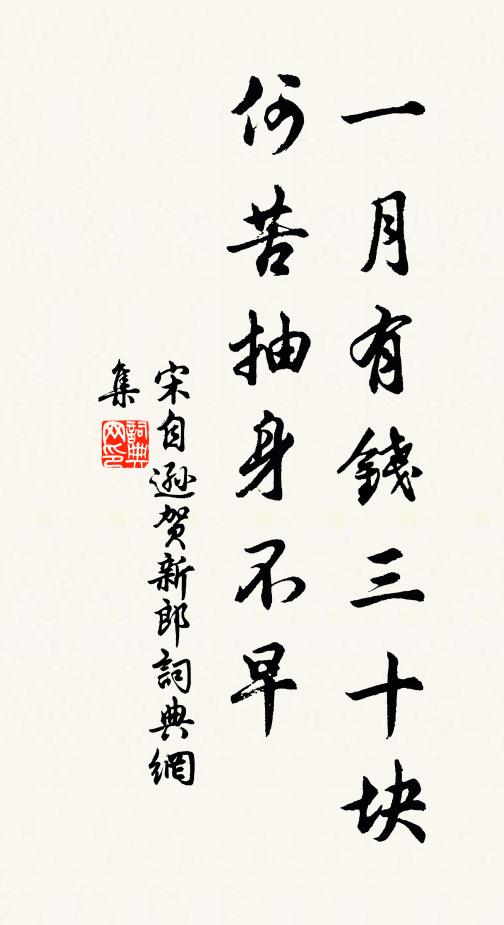 一月有錢三十块
何苦抽身不早
宋自遜贺新郎詞典網
集
詞典
网印